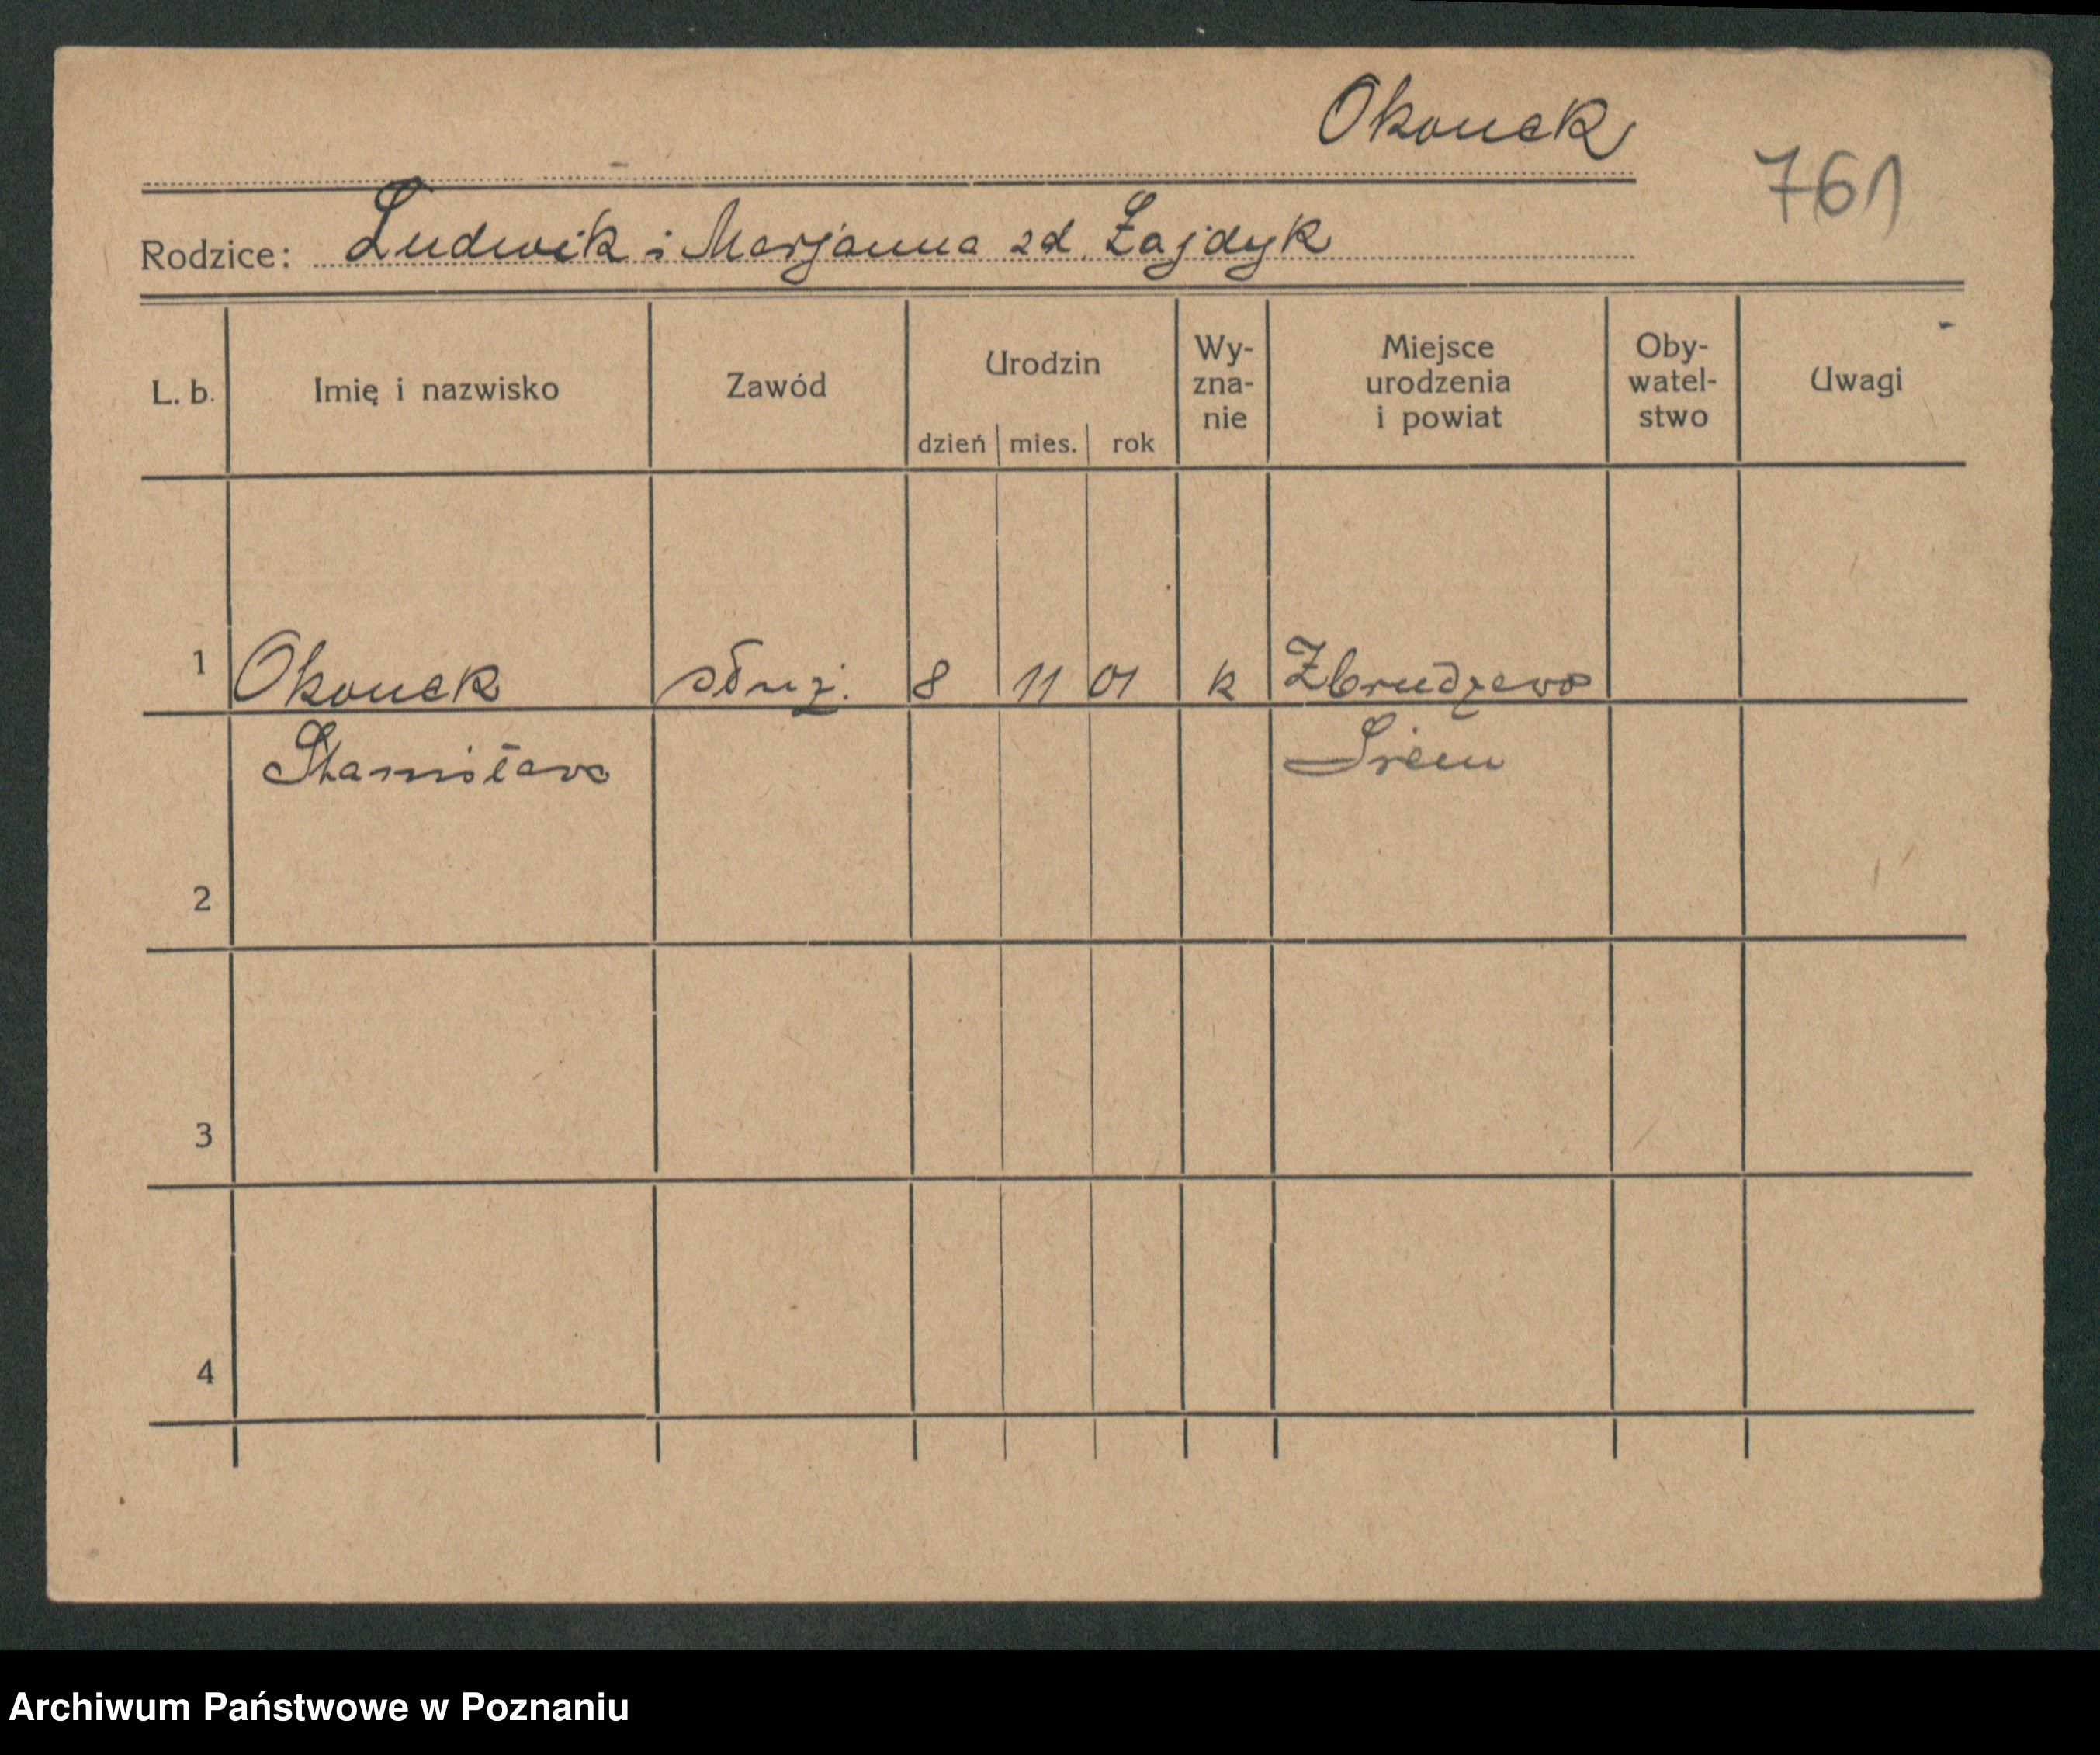 Okonek
761
Rodzice: Ludwik i Marjanna zd Łajdyk
L. b. Imię i nazwisko Zawód Urodzin dzień mies. rok Wy- zna- nie Miejsce urodzenia i powiat Oby- watel- stwo Uwagi
1 Okonek służ. 8 11 01 k Zbrudzewo
Stanisława Śrem
2
3
4
Archiwum Państwowe w Poznaniu